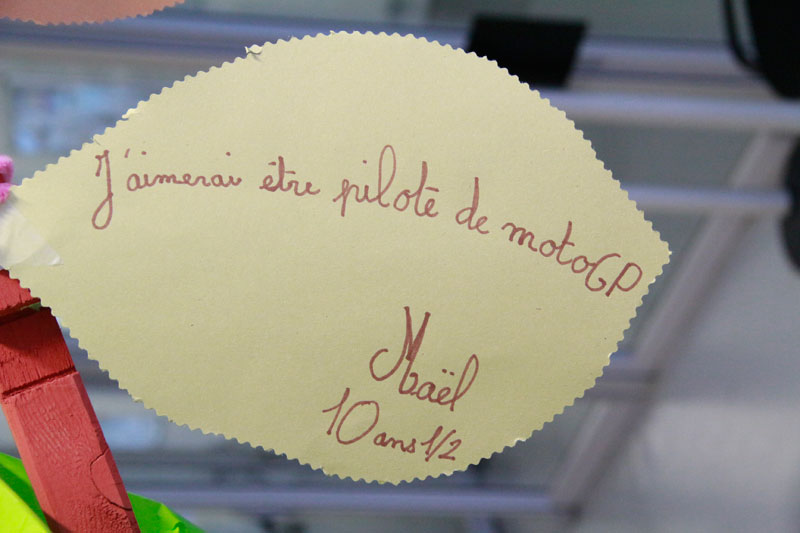 J'aimerai être pilote de motoGP
Maël
10 ans 1/2